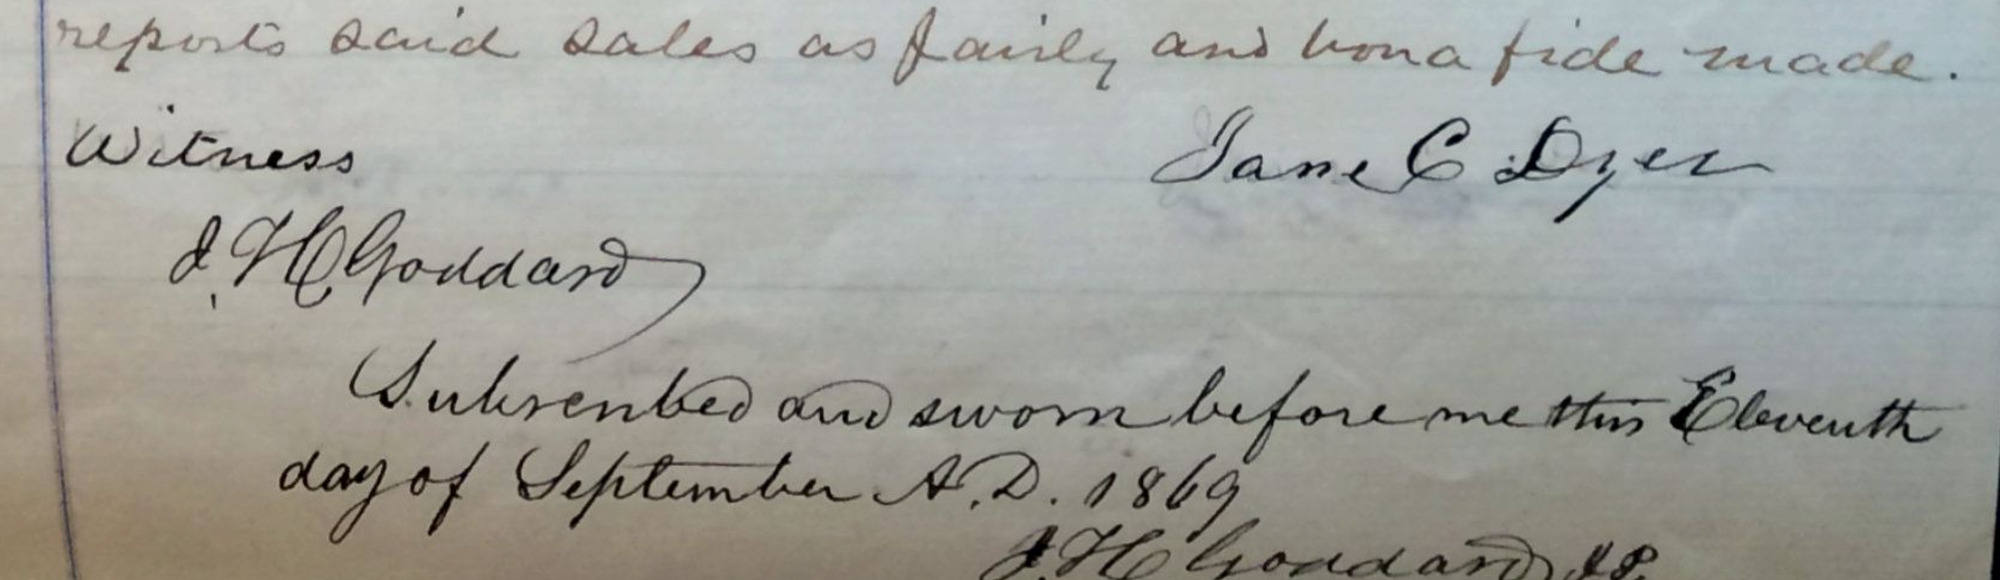 reports said sales as fairly and bona fide made.
Witness
Jane C Dyer
J. H Goddard
Subscribed and sworn before me this Eleventh
day of September A.D. 1869
J. H Goddard J.P.